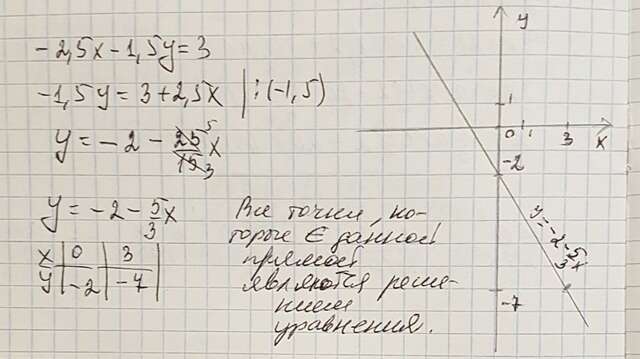 -2,5x - 1,5y = 3
-1,5y = 3 + 2,5x | : (-1,5)
y = -2 - 25/15 x
5
3
y = -2 - 5/3 x
x | 0 | 3
y | -2 | -7
Все точки, ко-
торые ∈ данной
прямой
являются реше-
нием
уравнения.
y
1
0 1 3 x
-2
y = -2 - 5/3 x
-7